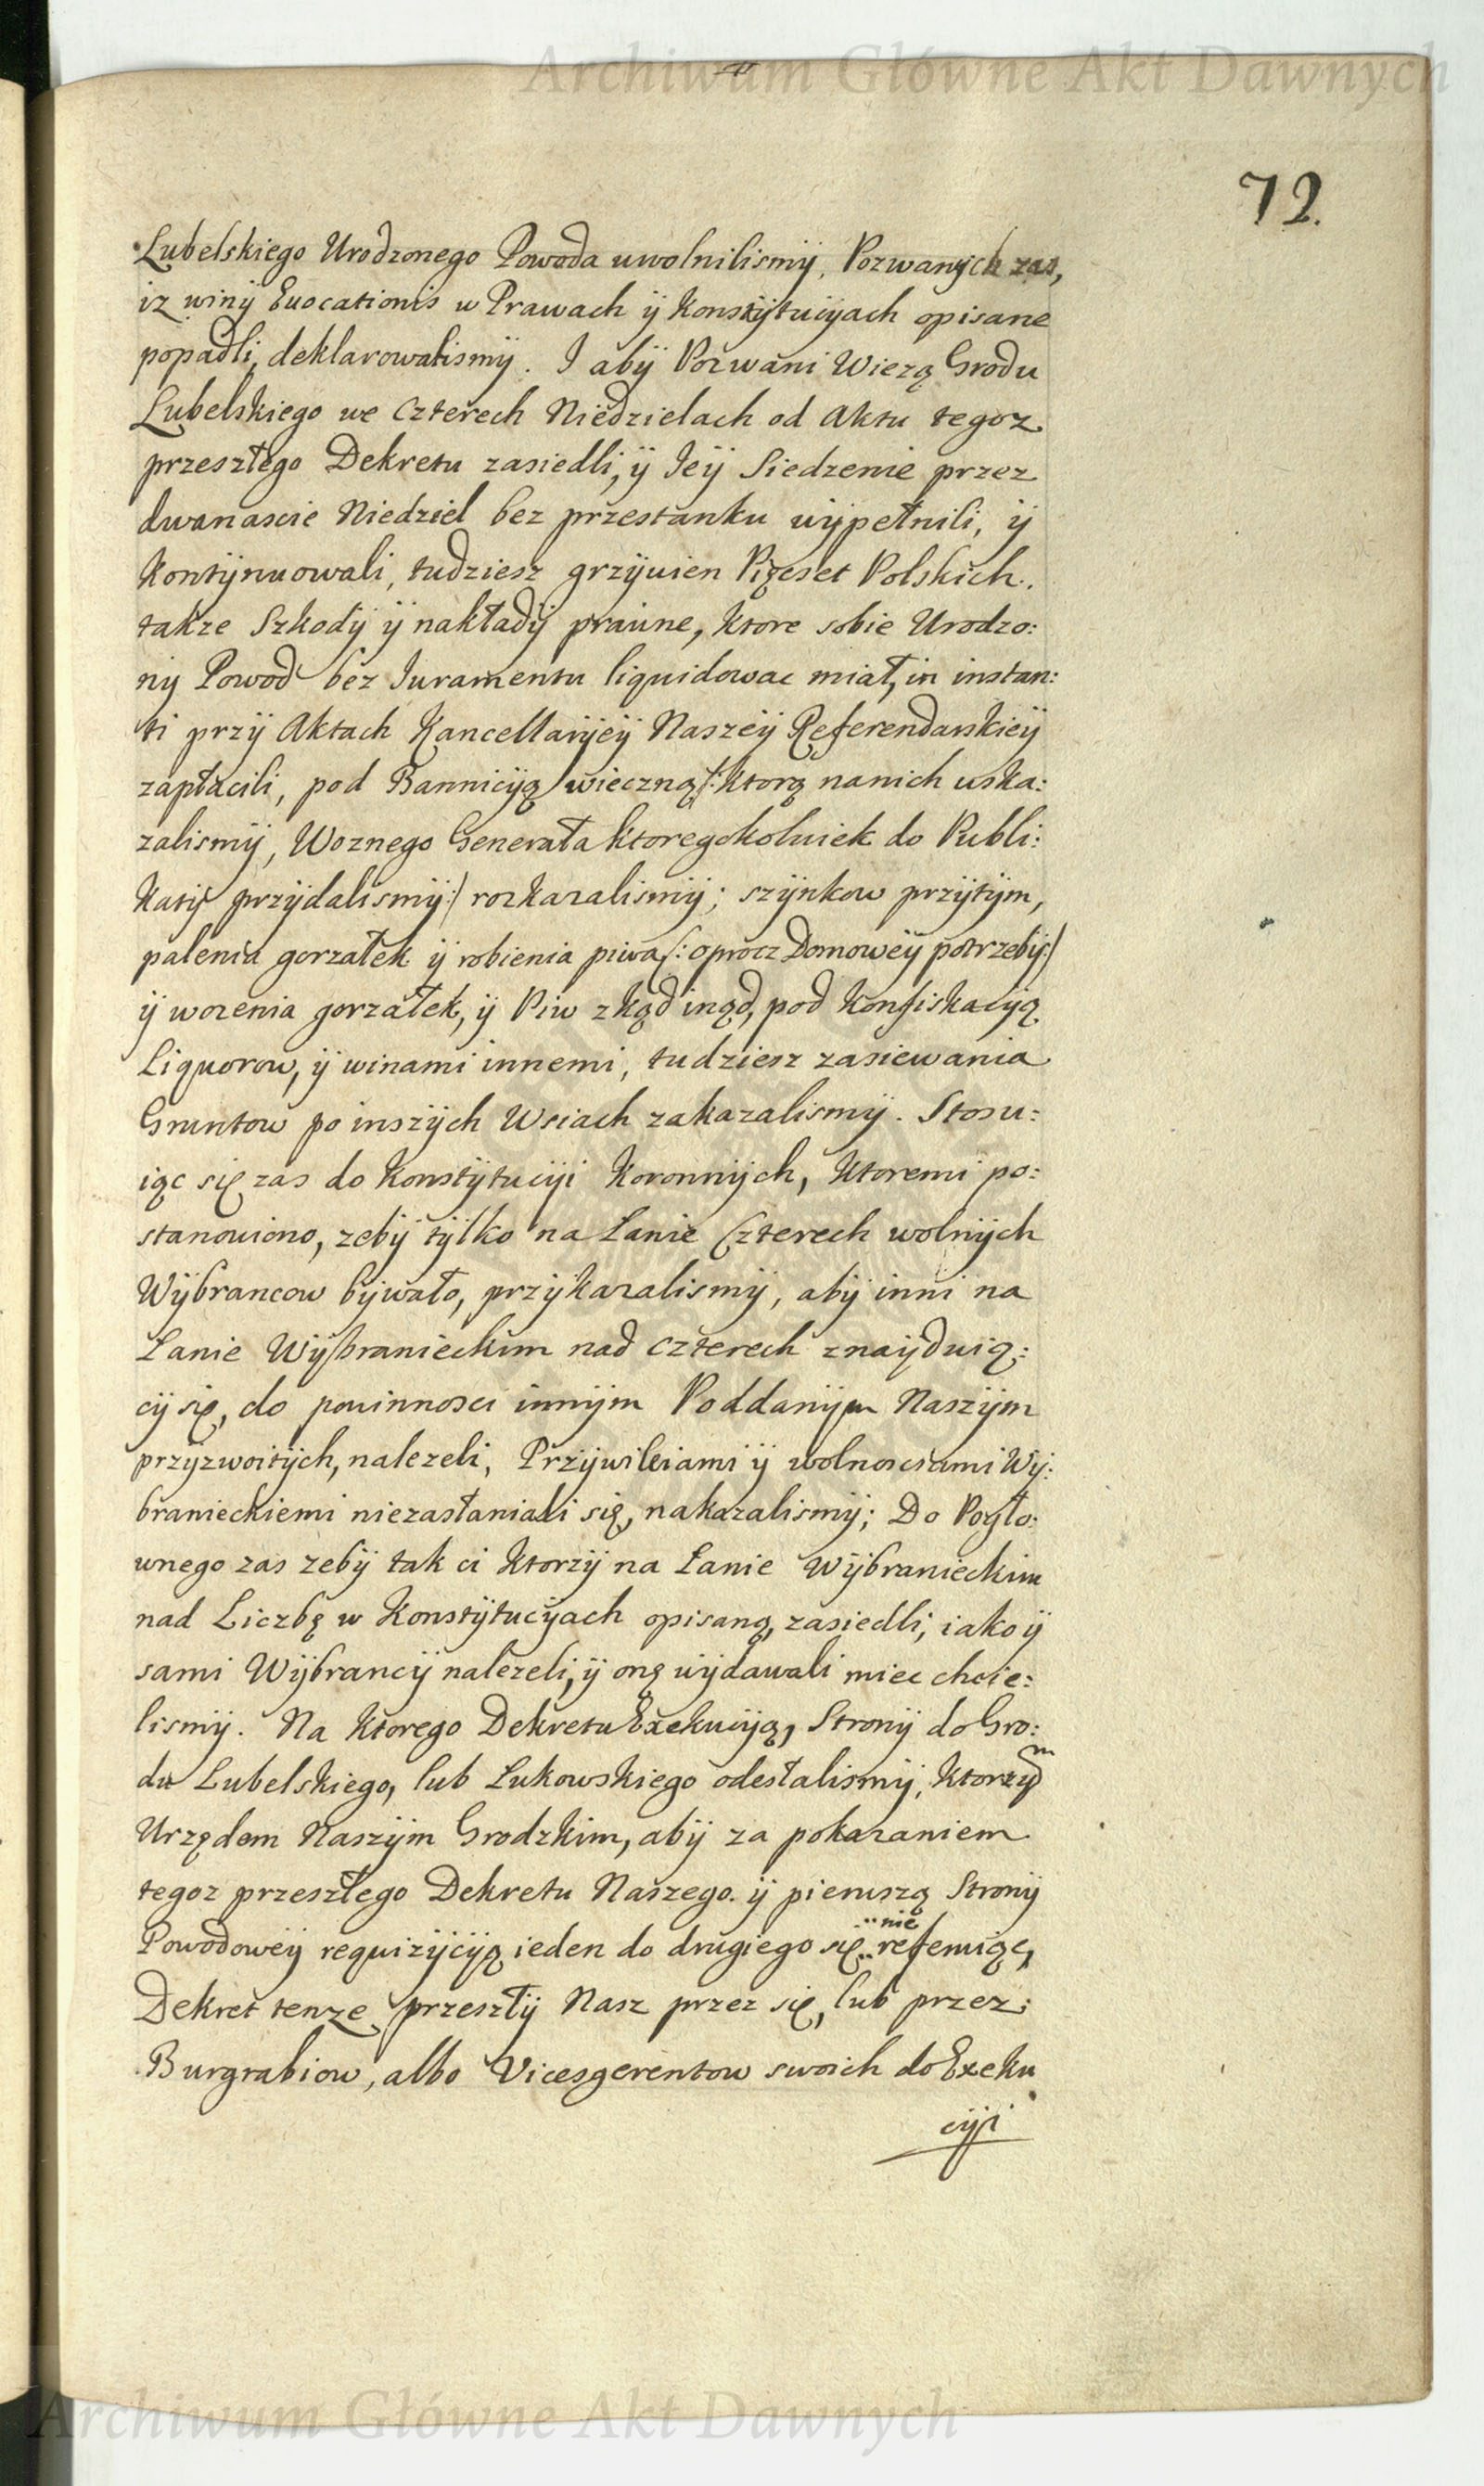 Archiwum Główne Akt Dawnych
72.
Lubelskiego Urodzonego Powoda uwolnilismÿ, Pozwanÿch zas,
iz winÿ Evocationis w Prawach ÿ Konstÿtucÿach opisane
popadli, deklarowalismÿ. I abÿ Pozwani Wiezą Grodu
Lubelskiego we Czterech Niedzielach od Aktu tegoz
przeszłego Dekretu zasiedli, ÿ Jeÿ Siedzenie przez
dwanascie Niedziel bez przestanku wÿpełnili, ÿ
Kontÿnuowali, tudziesz grzÿwien Pięcset Polskich.
także Szkodÿ ÿ nakładÿ prawne, ktore sobie Urodzo:
nÿ Powod bez Juramentu liquidowac miał, in instan:
ti przÿ Aktach Kancellarÿeÿ Naszeÿ Referendarskieÿ
zapłacili, pod Bannicÿą wieczną /: ktorą nanich wska:
zalismÿ, Woznego Generała ktoregokolwiek do Publi:
katÿ przÿdalismÿ :/ rozkazalismÿ; szÿnkow przÿtÿm,
palenia gorzałek ÿ robienia piwa /: oprocz Domoweÿ potrzebÿ :/
ÿ wozenia gorzałek, ÿ Piw zkąd inąd, pod Konfiskacÿą
Liquorow, ÿ winami innemi, tudziesz zasiewania
Gruntow po inszÿch Wsiach zakazalismÿ. Stosu:
iąc się zas do Konstÿtucÿi Koronnÿch, ktoremi po:
stanowiono, zebÿ tÿlko na Łanie Czterech wolnÿch
Wÿbrancow bÿwało, przÿkazalismÿ, abÿ inni na
Łanie Wÿbranieckim nad czterech znaÿduią:
cÿ się, do powinnosci innÿm Poddanÿm Naszÿm
przÿzwoitÿch, nalezeli, Przÿwileiami ÿ wolnosciami Wÿ:
branieckiemi niezasłaniali się, nakazalismÿ; Do Pogło:
wnego zas zebÿ tak ci ktorzÿ na Łanie Wÿbranieckim
nad Liczbę w Konstÿtucÿach opisaną, zasiedli, iako ÿ
sami Wÿbrancÿ nalezeli, ÿ onę wÿdawali miec chcie:
lismÿ. Na ktorego Dekretu Exekucÿą, Stronÿ do Gro:
du Lubelskiego, lub Łukowskiego odesłalismÿ, ktorzÿ
Urzędom Naszÿm Grodzkim, abÿ za pokazaniem
tegoz przeszłego Dekretu Naszego ÿ pierwszą Stronÿ
Powodoweÿ requizÿcÿą ieden do drugiego się nie referuiąc,
Dekret tenze przeszłÿ Nasz przez się, lub przez
Burgrabiow, albo Vicesgerentow swoich do Exeku
cÿi
Archiwum Główne Akt Dawnych